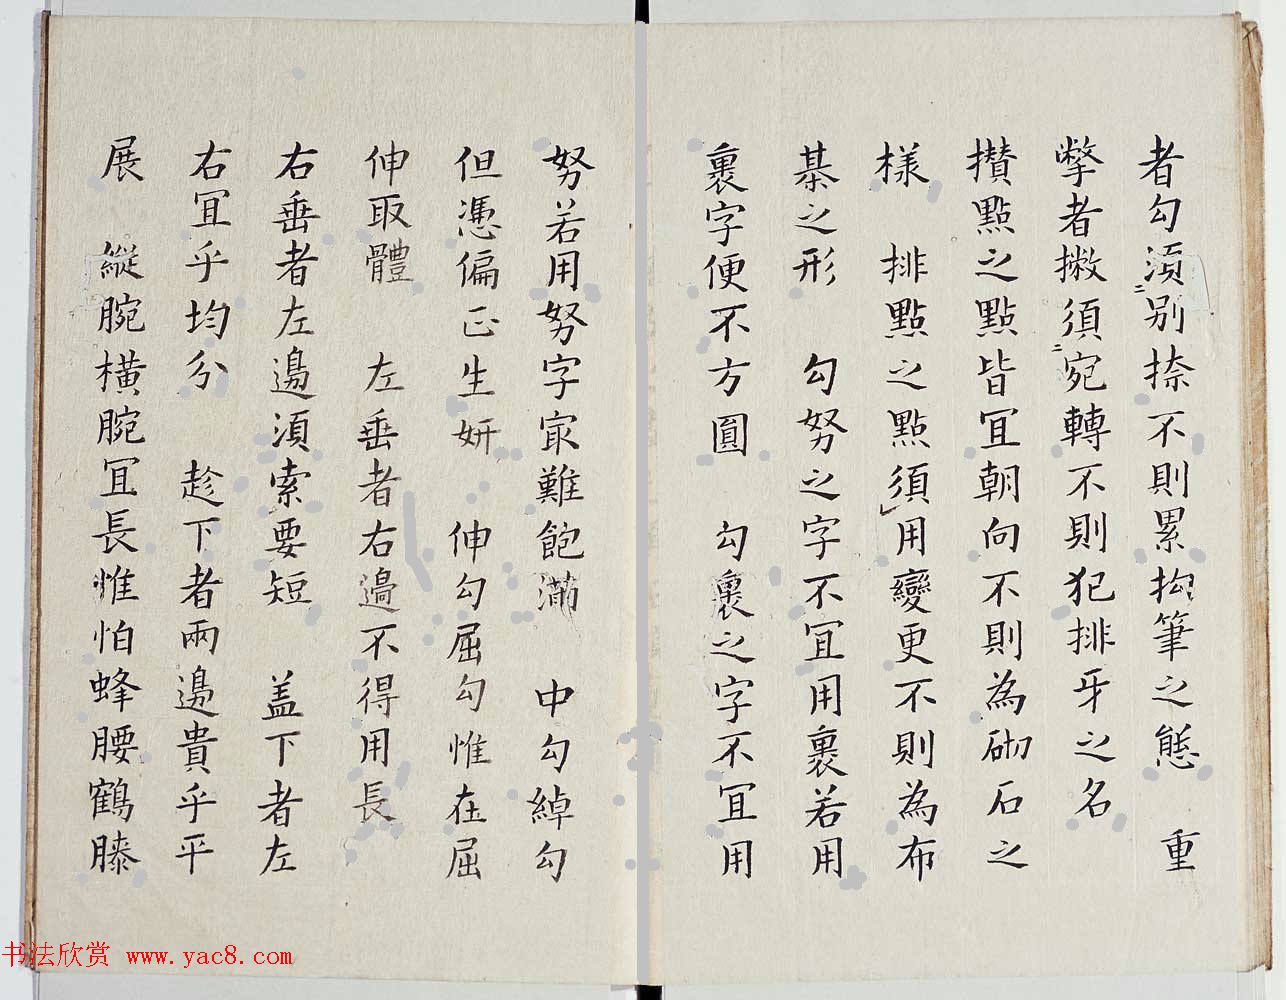 者勾須別捺不則累拘筆之態　重
撆者撇須宛轉不則犯排牙之名
攅點之點皆宜朝向不則為砌石之
樣　排點之點須用變更不則為布
棊之形　勾努之字不宜用裹若用
裹字便不方圓　勾裹之字不宜用
努若用努字冣難飽滿　中勾綽勾
但憑偏正生妍　伸勾屈勾惟在屈
伸取體　左垂者右邊不得用長
右垂者左邊須索要短　盖下者左
右冝乎均分　趁下者兩邊貴乎平
展　縱腕橫腕冝長惟怕蜂腰鶴膝
书法欣赏 www.yac8.com